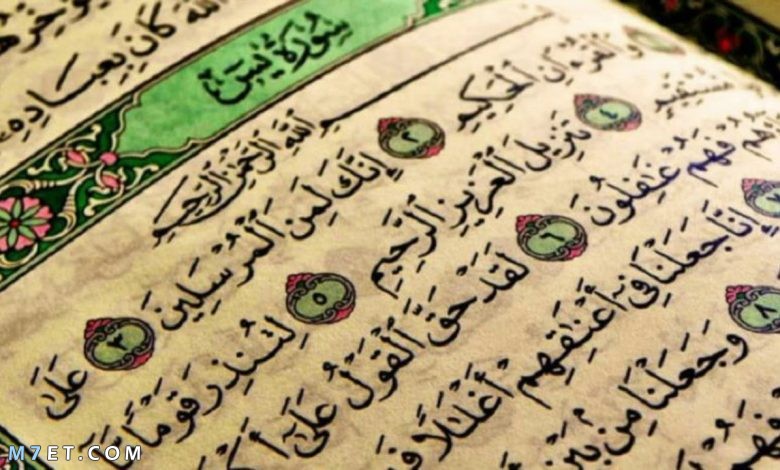 ٱللَّهَ كَانَ بِعِبَادِهِۦ
سُورَةُ يسٓ
بِسْمِ ٱللَّهِ ٱلرَّحْمَٰنِ ٱلرَّحِيمِ
وَٱلْقُرْءَانِ ٱلْحَكِيمِ ٢ إِنَّكَ لَمِنَ ٱلْمُرْسَلِينَ ٣ عَلَىٰ
مُّسْتَقِيمٍ ٤ تَنزِيلَ ٱلْعَزِيزِ ٱلرَّحِيمِ ٥ لِتُنذِرَ قَوْمًا مَّا
فَهُمْ غَٰفِلُونَ ٦ لَقَدْ حَقَّ ٱلْقَوْلُ عَلَىٰٓ
إِنَّا جَعَلْنَا فِىٓ أَعْنَٰقِهِمْ أَغْلَٰلًا
٨ وَجَعَلْنَا مِنۢ بَيْنِ
M7ET.COM